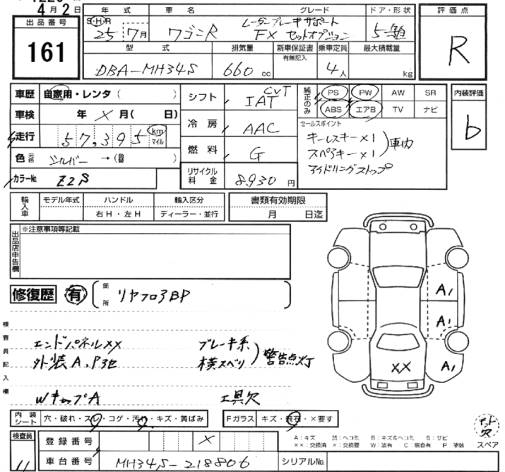 4月2日
出品番号
161
年式 車名 グレード ドア・形状 評価点
S・H・R 25年7月 ワゴンR レーダーブレーキサポート
FX セットオプション 5
R
型式 排気量 新車保証書 乗車定員 最大積載量
有無記入
DBA-MH34S 660cc 4人 kg
車歴 自家用・レンタ( ) シフト CVT IAT 純正のみ PS PW AW SR 内装評価
ABS エアB TV ナビ
車検 年 × 月( 日) 冷房 AAC セールスポイント
b
キーレスキー×1
スペアキー×1 車内
アイドリングストップ
走行 57,395 km マイル
燃料 G
色 シルバー →( 色)
リサイクル料金 8930円
カラーNo. Z2S
輸入車 モデル年式 ハンドル 輸入区分 書類有効期限
右H・左H ディーラー・並行 月 日迄
出品店申告欄 ※注意事項等記載
修復歴 有 箇所 リヤフロアBP
検査員記入欄
エンドパネルXX ブレーキ系
外装A,P3色 横スベリ 警告点灯
Wキャップ A
工具欠
A1
A1
A1
XX
内装シート 穴・破れ・スレ・コゲ・汚れ・キズ・黄ばみ Fガラス キズ・ ・×要す
検査員 登録番号 ×
車台番号 MH34S-218806 シリアルNo.
スペア